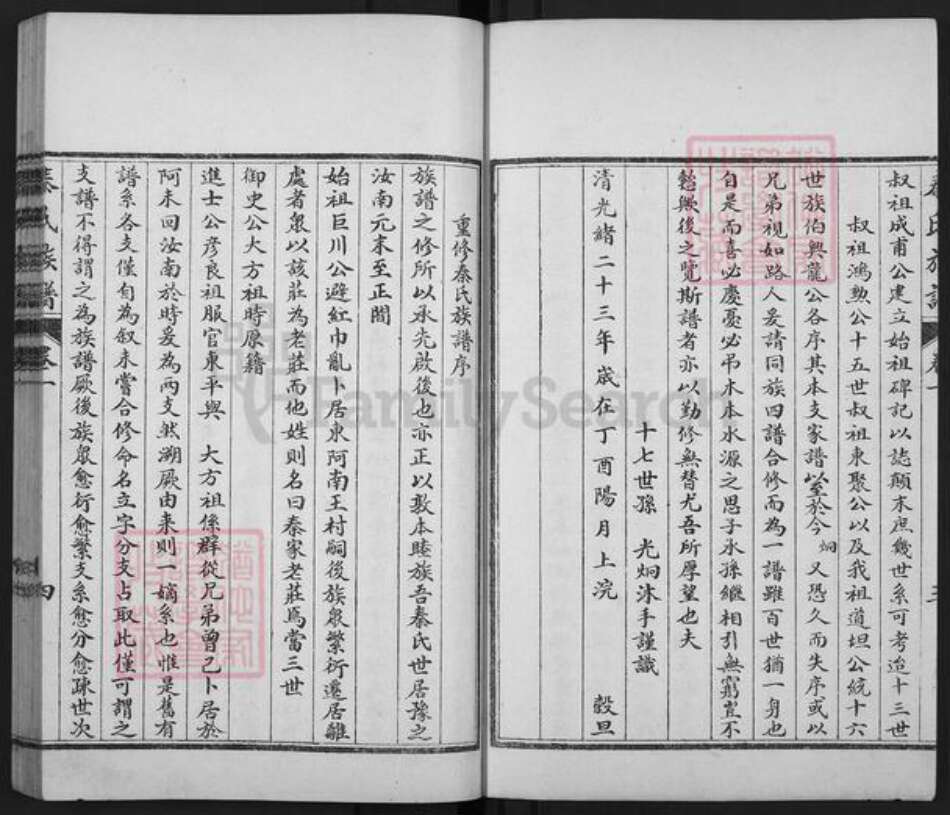 秦氏族譜 卷一 三
叔祖成甫公建立始祖碑記以誌顛末庶幾世系可考迨十三世
叔祖鴻勲公十五世叔祖東聚公以及我祖道坦公統十六
世族伯興龍公各序其本支家譜以至於今炯又恐久而失序或以
兄弟視如路人爰請同族四譜合修而為一譜雖百世猶一身也
自是而喜必慶憂必吊木本水源之思子永孫繼相引無窮豈不
懿歟後之覽斯譜者亦以勤修無替尤吾所厚望也夫
十七世孫 光炯沐手謹識
清光緒二十三年歲在丁酉陽月上浣 穀旦
重修秦氏族譜序
族譜之修所以承先啟後也亦正以敦本睦族吾秦氏世居豫之
汝南元末至正間
始祖巨川公避紅巾亂卜居東阿南王村嗣後族衆繁衍遷居離
處者衆以該莊為老莊而他姓則名曰秦家老莊焉當三世
御史公大方祖時原籍
進士公彦良祖服官東平與 大方祖係群從兄弟曾已卜居於
阿未回汝南於時爰為兩支然溯厥由来則一嫡系也惟是舊有
譜系各支僅自為叙未嘗合修命名立字分支占取此僅可謂之
支譜不得謂之為族譜厥後族衆愈衍愈繁支系愈分愈疎世次
秦氏族譜 卷一 四
FamilySearch